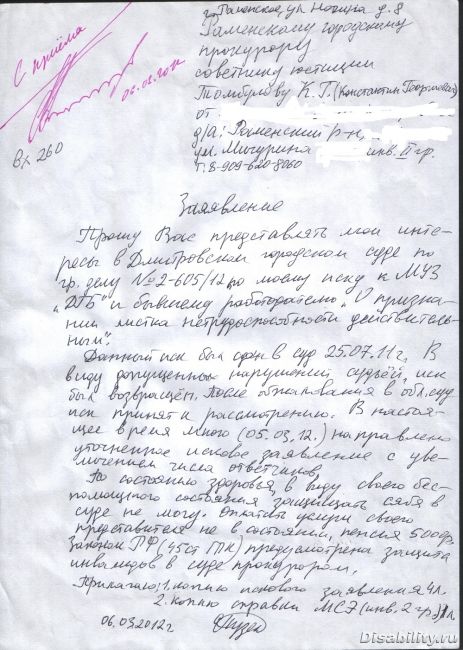 г. Раменское, ул. Ногина д. 8
Раменскому городскому
прокурору
советнику юстиции
К. Г. (Константин Георгиевич)
от
д/а: Раменский р-н,
ул. Мичурина инв. II гр.
т. 8-909-620-8060
С приёма
06.03.2012
Вх 260
Заявление
Прошу Вас представлять мои инте-
ресы в Дмитровском городском суде по
гр. делу № 2-605/12 по моему иску к МУЗ
"ДГБ" и бывшему работодателю "О призна-
нии листка нетрудоспособности действитель-
ным".
Данный иск был сдан в суд 25.07.11г. В
виду допущенных нарушений судьёй, иск
был возвращён. После обжалования в обл.суд
иск принят к рассмотрению. В настоя-
щее время мною (05.03.12.) направлено
уточненное исковое заявление с уве-
личением числа ответчиков.
По состоянию здоровья, в виду своего бес-
помощного состояния защищать себя в
суде не могу. Оплатить услуги своего
представителя не в состоянии, пенсия 5000р.
Законом РФ (45ст ГПК) предусмотрена защита
инвалидов в суде прокурором.
Прилагаю: 1. копию искового заявления 4л.
2. копию справки МСЭ (инв. 2 гр.) 1л.
06.03.2012г
Disability.ru